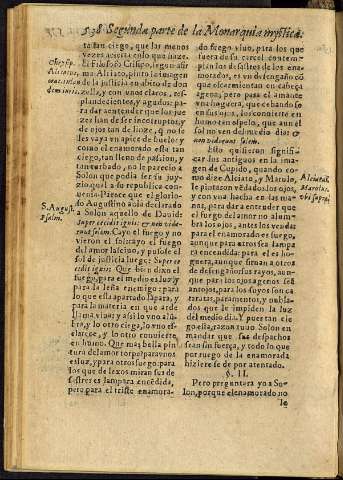 538 Segunda parte de la Monarquia mystica
ta tan ciego, que las menos
vezes acierta colo que haze.
El Filosofo Crisipo, segun afir
ma Alciato, pinto la imagen
de la justicia en abito de don
zella, y de ojos agudos, y seueros
para dar a entender que los jue
zes han de ser incorruptos, y
de ojos tan de lince, que no le
les vaya en apice de buelo: y
como el enamorado esta tan
ciego, tan lleno de passion, y
tan turbado, no le parecio a
Solon que podia ser su juy-
zio qual a su republica con
uenia. Parece que el glorio
do Augustino auia declarado
a Solon aquello de Dauid:
Super cecidit ignis: & non vide-
runt solem. Cayo el fuego y no
vieron el sol: cayo el fuego
del amor lasciuo, y pusose el
sol de justicia luego: Super ce
cidit ignis. Que bien dixo el
fuego, para el medio es luz, y
pira la leña enemigo: para
lo que esta apartado lapara, y
para la materia en que arde
llama viua: y assi lo vno alũ-
bra, y lo otro ciega, lo vno es-
clarece, y lo otro conuierte
en humo. Que mas bella pin
tura del amor torpe? para vnos
es luz, y para otros fuego. para
los que de lexos miran sus de
sastres es lampara encẽdida,
pero para el triste enamora-
do fuego viuo, para los que
fuera de su carcel contem-
plan los desastres de los ena-
morados, es vn desengaño cõ
que escarmientan en cabeça
agena; pero para el amante
vna hoguera, donde cebando
sus gustos, los conuierte en
humo tan espeso, que aun el
sol no ven del medio dia: &
non viderunt solem.
Esto quisieron signifi-
car los antiguos en la ima-
gen de Cupido, quando co-
mo dize Alciato, y Marulo,
le pintaron vẽdados los ojos,
y con vna hacha en las ma-
nos, para dar a entender que
el fuego del amor no alum-
bra los ojos, antes los venda
para el enamorado es fuego,
aunque para otros sea lampa
ra encendida: para el es ho-
guera, aunque siruan a otros
de desengaño sus rayos, aun-
que para los ojos agenos sea
antojos, para los suyos son ca
taratas, paramentos, y nubla-
dos que le impiden la luz
del medio dia. Y pues tan cie
go esta, razon tuuo Solon en
mandar que sus despachos
sean sin fuerça, y todo lo que
por ruego de la enamorada
hiziere se de por atentado.
§. II.
Pero preguntara yo a So-
lon, porque el enamorado no
le
Alciatus,
S. August.
Psalm.
Alciatus.
Marulus.
vbi supra.